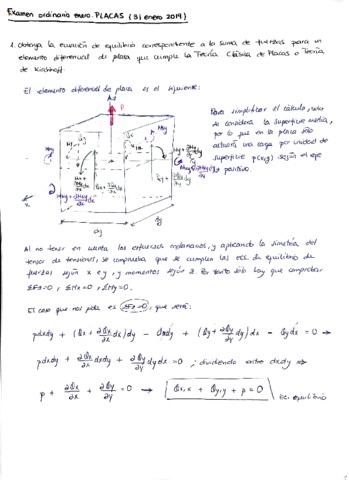 Examen ordinario enero. PLACAS (31 enero 2019)
1. Obtenga la ecuación de equilibrio correspondiente a la suma de fuerzas para un
elemento diferencial de placa que cumple la Teoría Clásica de Placas o Teoría
de Kirchhoff.
El elemento diferencial de placa es el siguiente:
P
Para simplificar el cálculo, solo
se considera la superficie media,
por lo que en la placa sólo
actuará una carga por unidad de
superficie p(x,y) según el eje
positivo.
dy
Al no tener en cuenta los esfuerzos membrana, y aplicando la simetría del
tensor de tensiones, se comprueba que se cumplen las ecs. de equilibrio de
fuerzas según x e y, y momentos según z. Por tanto sólo hay que comprobar
ΣFz=0, ΣMx=0, ΣMy=0.
El caso que nos pide es ΣFz=0, que será:
pdxdy + (Qx + ∂Qx/∂x dx)dy - Qxdy + (Qy + ∂Qy/∂y dy)dx - Qydx = 0 →
pdxdy + ∂Qx/∂x dxdy + ∂Qy/∂y dydx = 0 ; dividiendo entre dxdy →
p + ∂Qx/∂x + ∂Qy/∂y = 0 → Qx,x + Qy,y + p = 0
Ec. equilibrio